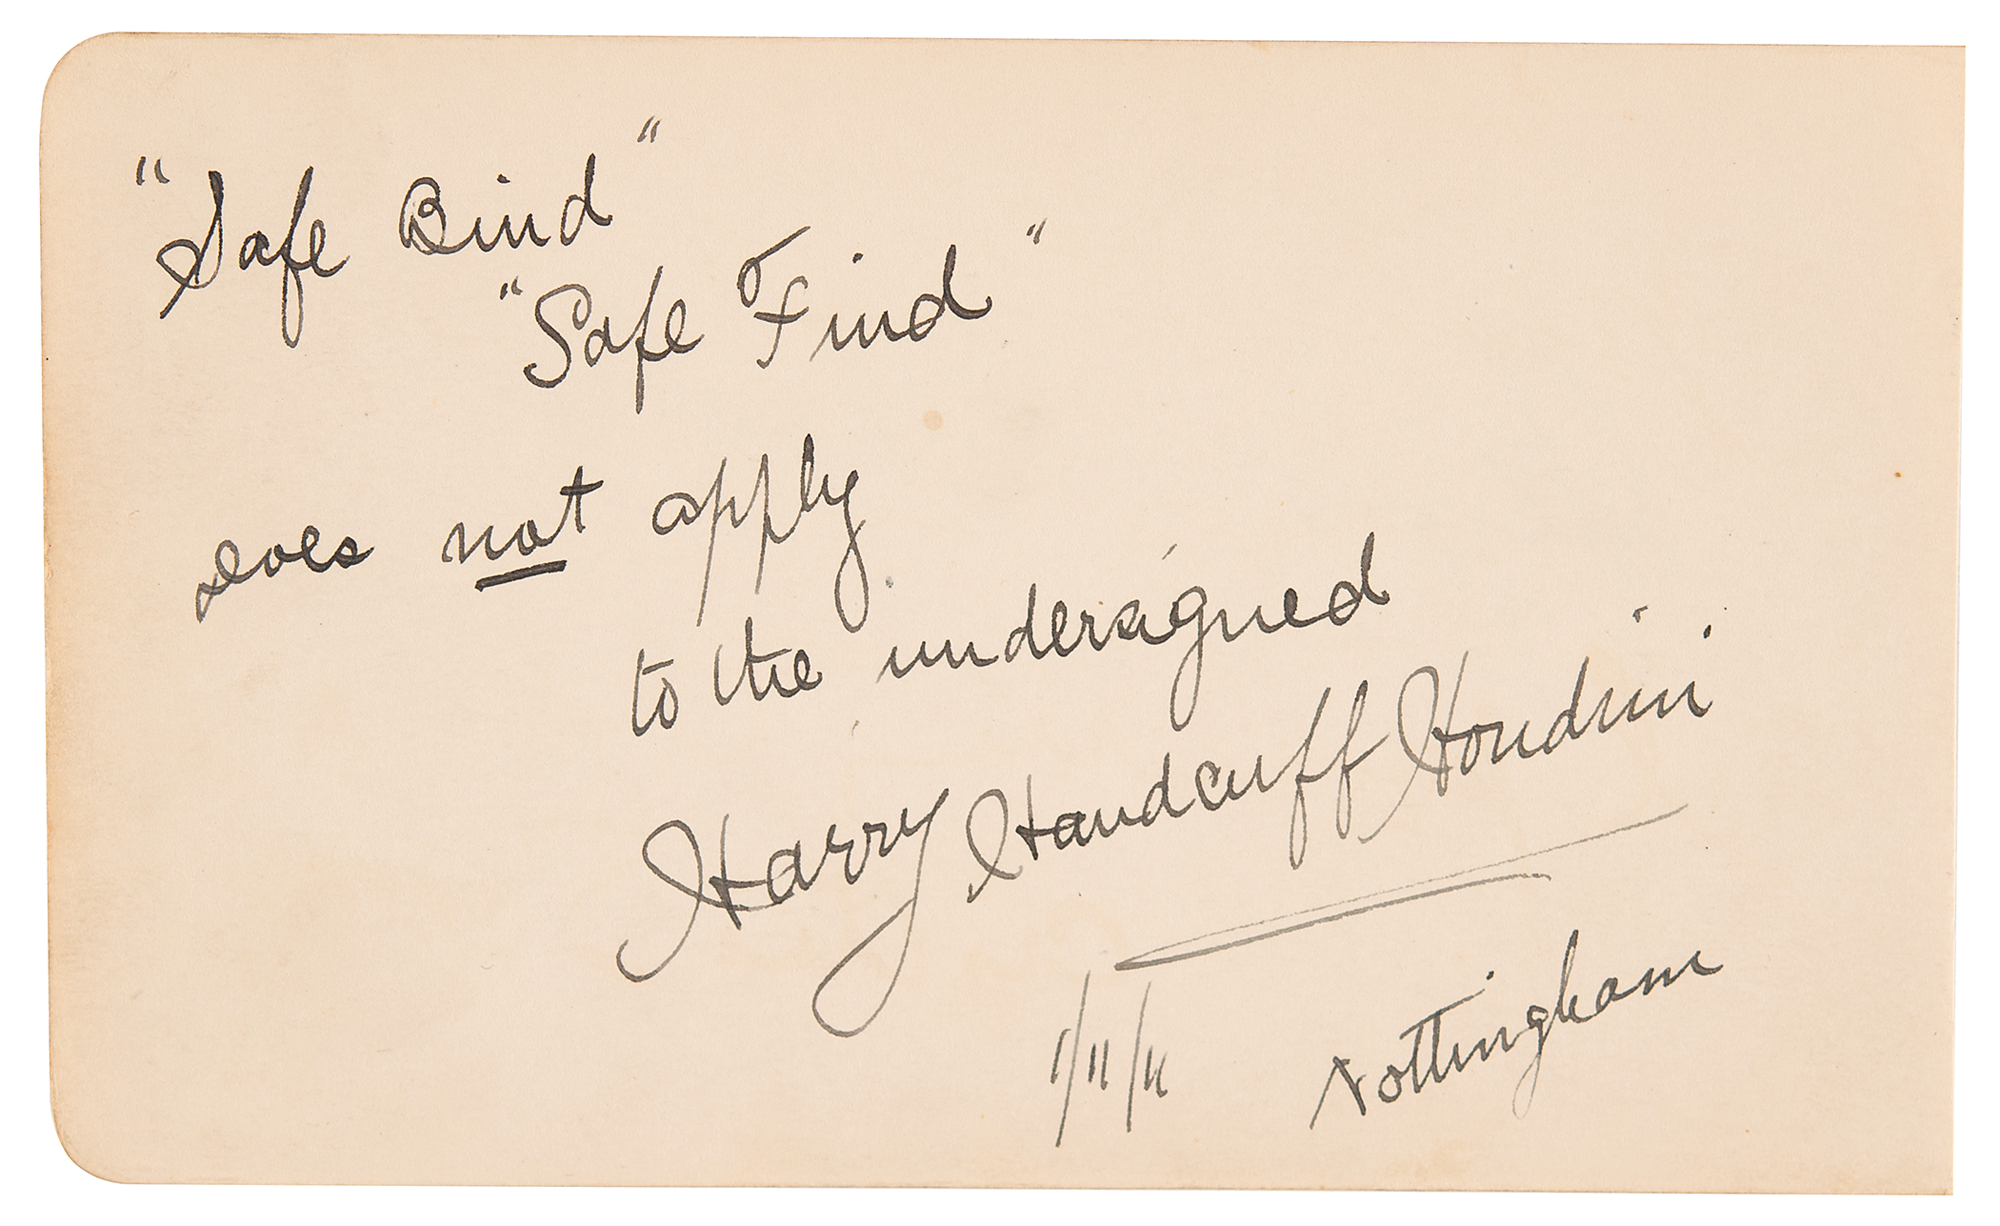 "Safe Bind"
"Safe Find"
does not apply
to the undersigned
Harry Handcuff Houdini
1/11/11 Nottingham